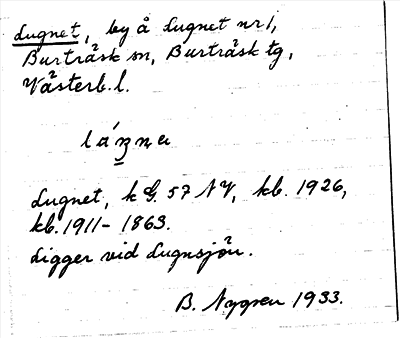 Lugnet, by å Lugnet nr 1,
Burträsk sn, Burträsk tg,
Västerb. l.
Lugnet, k G. 57 NV, kb. 1926,
kb. 1911-1863.
Ligger vid Lugnsjön.
B. Nygren 1933.